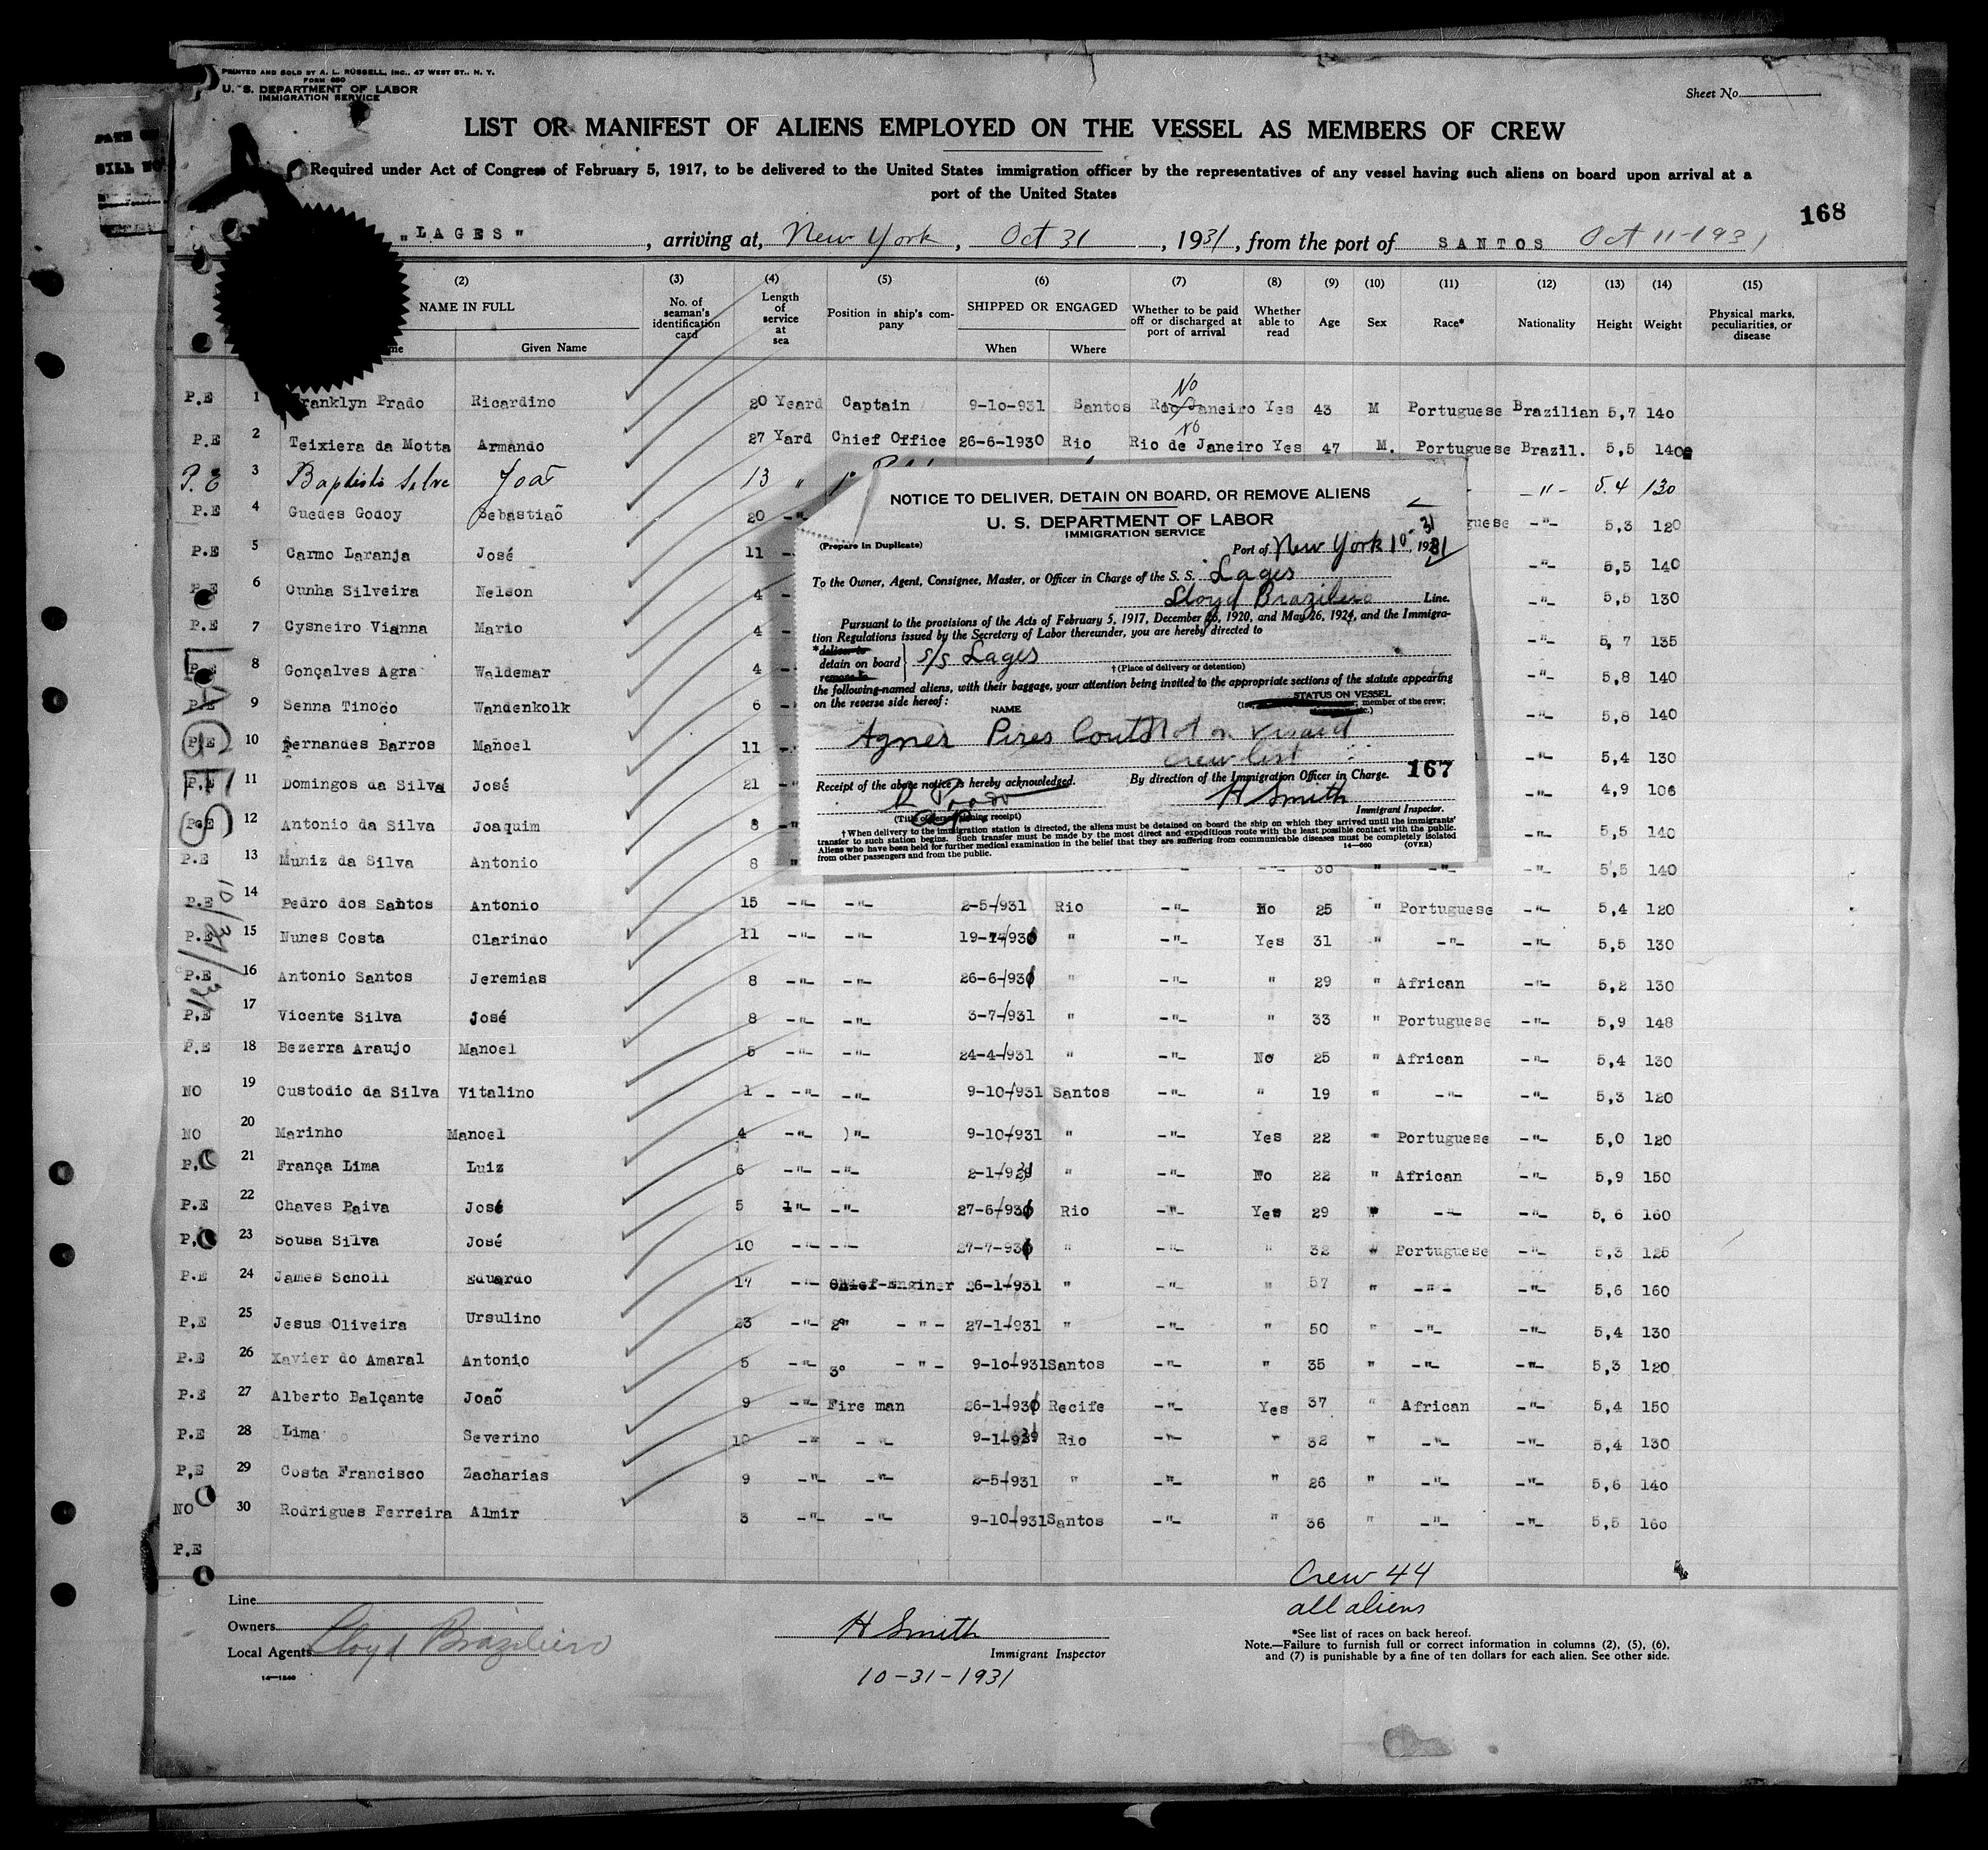 PRINTED AND SOLD BY A. L. RUSSELL, INC., 47 WEST ST., N. Y.
FORM 680
U. S. DEPARTMENT OF LABOR
IMMIGRATION SERVICE
Sheet No.
LIST OR MANIFEST OF ALIENS EMPLOYED ON THE VESSEL AS MEMBERS OF CREW
Required under Act of Congress of February 5, 1917, to be delivered to the United States immigration officer by the representatives of any vessel having such aliens on board upon arrival at a
port of the United States
168
"LAGES", arriving at, New York, Oct 31, 1931, from the port of SANTOS Oct 11-1931
(2) (3) (4) (5) (6) (7) (8) (9) (10) (11) (12) (13) (14) (15)
NAME IN FULL No. of seaman's identification card Length of service at sea Position in ship's company SHIPPED OR ENGAGED Whether to be paid off or discharged at port of arrival Whether able to read Age Sex Race* Nationality Height Weight Physical marks, peculiarities, or disease
Given Name When Where
No
P.E 1 Franklyn Prado Ricardino 20 Yeard Captain 9-10-931 Santos Rio Janeiro Yes 43 M Portuguese Brazilian 5,7 140
No
P.E 2 Teixiera da Motta Armando 27 Yard Chief Office 26-6-1930 Rio Rio de Janeiro Yes 47 M. Portuguese Brazil. 5,5 140
P.E 3 Baptista Silva Joaõ 13 " 1º -"- 5.4 130
P.E 4 Guedes Godoy Sebastiaõ 20 -"- guese -"- 5,3 120
P.E 5 Carmo Laranja José 11 - -"- 5,5 140
P.E 6 Cunha Silveira Nelson 4 - -"- 5,5 130
P.E 7 Cysneiro Vianna Mario 4 - -"- 5,7 135
P.E 8 Gonçalves Agra Waldemar 4 - -"- 5,8 140
P.E 9 Senna Tinoco Wandenkolk 6 - -"- 5,8 140
P.E 10 Fernandes Barros Manoel 11 - -"- 5,4 130
P.E 11 Domingos da Silva José 21 -" -"- 4,9 106
P.E 12 Antonio da Silva Joaquim 8 -" -"- 5,5 140
P.E 13 Muniz da Silva Antonio 8 " 30 " -"- -"- 5,5 140
P.E 14 Pedro dos Santos Antonio 15 -"- -"- 2-5-/931 Rio -"- No 25 " Portuguese -"- 5,4 120
P.E 15 Nunes Costa Clarindo 11 -"- -"- 19-7-/930 " -"- Yes 31 " -"- -"- 5,5 130
P.E 16 Antonio Santos Jeremias 8 -"- -"- 26-6-/930 " -"- " 29 " African -"- 5,2 130
P.E 17 Vicente Silva José 8 -"- -"- 3-7-/931 " -"- " 33 " Portuguese -"- 5,9 148
P.E 18 Bezerra Araujo Manoel 5 -"- -"- 24-4-/931 " -"- No 25 " African -"- 5,4 130
NO 19 Custodio da Silva Vitalino 1 - -"- -"- 9-10-/931 Santos -"- " 19 " -"- -"- 5,3 120
NO 20 Marinho Manoel 4 -"- )"- 9-10-/931 " -"- Yes 22 " Portuguese -"- 5,0 120
P. 21 França Lima Luiz 6 -"- -"- 2-1-/931 " -"- No 22 " African -"- 5,9 150
P.E 22 Chaves Paiva José 5 1"- -"- 27-6-/930 Rio -"- Yes 29 " -"- -"- 5,6 160
P. 23 Sousa Silva José 10 -"- -"- 27-7-930 " -"- " 32 " Portuguese -"- 5,3 125
P.E 24 James Scholl Eduardo 17 -"- Chief-Enginer 26-1-/931 " -"- " 57 " -"- -"- 5,6 160
P.E 25 Jesus Oliveira Ursulino 23 -"- 2º -"- 27-1-/931 " -"- " 50 " -"- -"- 5,4 130
P.E 26 Xavier do Amaral Antonio 5 -"- 3º -"- 9-10-/931 Santos -"- " 35 " -"- -"- 5,3 120
P.E 27 Alberto Balçante Joaõ 9 -"- Fire man 26-1-/930 Recife -"- Yes 37 " African -"- 5,4 150
P.E 28 Lima Severino 10 -"- -"- 9-1-931 Rio -"- " 32 " -"- -"- 5,4 130
P,E 29 Costa Francisco Zacharias 9 -"- -"- 2-5-/931 " -"- " 26 " -"- -"- 5,6 140
NO 30 Rodrigues Ferreira Almir 3 -"- -"- 9-10-/931 Santos -"- " 36 " -"- -"- 5,5 160
P.E
10/31/31
NOTICE TO DELIVER, DETAIN ON BOARD, OR REMOVE ALIENS
U. S. DEPARTMENT OF LABOR
IMMIGRATION SERVICE
(Prepare in Duplicate)
Port of New York 10-31, 1931
To the Owner, Agent, Consignee, Master, or Officer in Charge of the S. S. Lages
Lloyd Brazileiro Line.
Pursuant to the provisions of the Acts of February 5, 1917, December 26, 1920, and May 26, 1924, and the Immigra-
tion Regulations issued by the Secretary of Labor thereunder, you are hereby directed to
*deliver to
detain on board } S/S Lages
remove to
†(Place of delivery or detention)
the following-named aliens, with their baggage, your attention being invited to the appropriate sections of the statute appearing
on the reverse side hereof:
NAME STATUS ON VESSEL
member of the crew;
Agner Pires Couto Not on visaed
crew list
Receipt of the above notice is hereby acknowledged. By direction of the Immigration Officer in Charge. 167
R Prado H Smith
(Title of person signing receipt) Immigrant Inspector.
†When delivery to the immigration station is directed, the aliens must be detained on board the ship on which they arrived until the immigrants'
transfer to such station begins. Such transfer must be made by the most direct and expeditious route with the least possible contact with the public.
Aliens who have been held for further medical examination in the belief that they are suffering from communicable diseases must be completely isolated
from other passengers and from the public. 14—660 (OVER)
Crew 44
all aliens
Line
Owners
Local Agents Lloyd Brazileiro
14—1240
H Smith
Immigrant Inspector
10-31-1931
*See list of races on back hereof.
Note.—Failure to furnish full or correct information in columns (2), (5), (6),
and (7) is punishable by a fine of ten dollars for each alien. See other side.